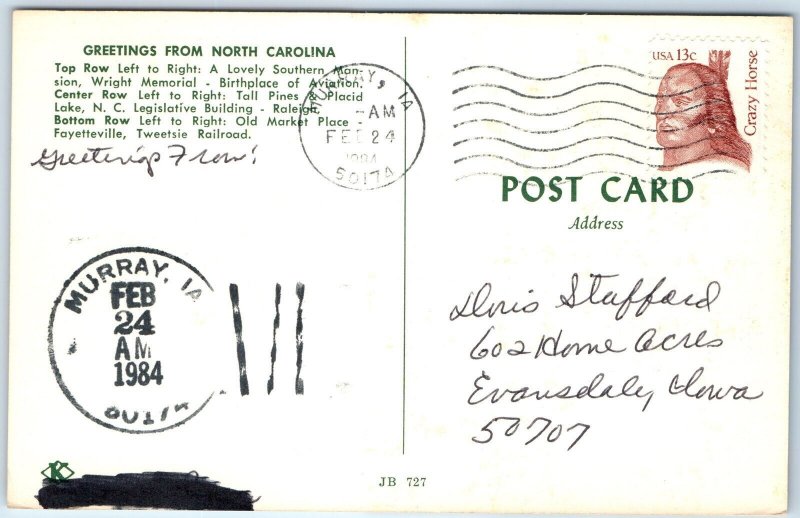 GREETINGS FROM NORTH CAROLINA
Top Row Left to Right: A Lovely Southern Man-
sion, Wright Memorial - Birthplace of Aviation.
Center Row Left to Right: Tall Pines & Placid
Lake, N. C. Legislative Building - Raleigh.
Bottom Row Left to Right: Old Market Place -
Fayetteville, Tweetsie Railroad.
Greetings From!
MURRAY, IA
-AM
FEB 24
1984
50174
USA 13c
Crazy Horse
POST CARD
Address
MURRAY, IA
FEB
24
AM
1984
50174
Doris Stafford
602 Home Acres
Evansdale, Iowa
50707
K
JB 727